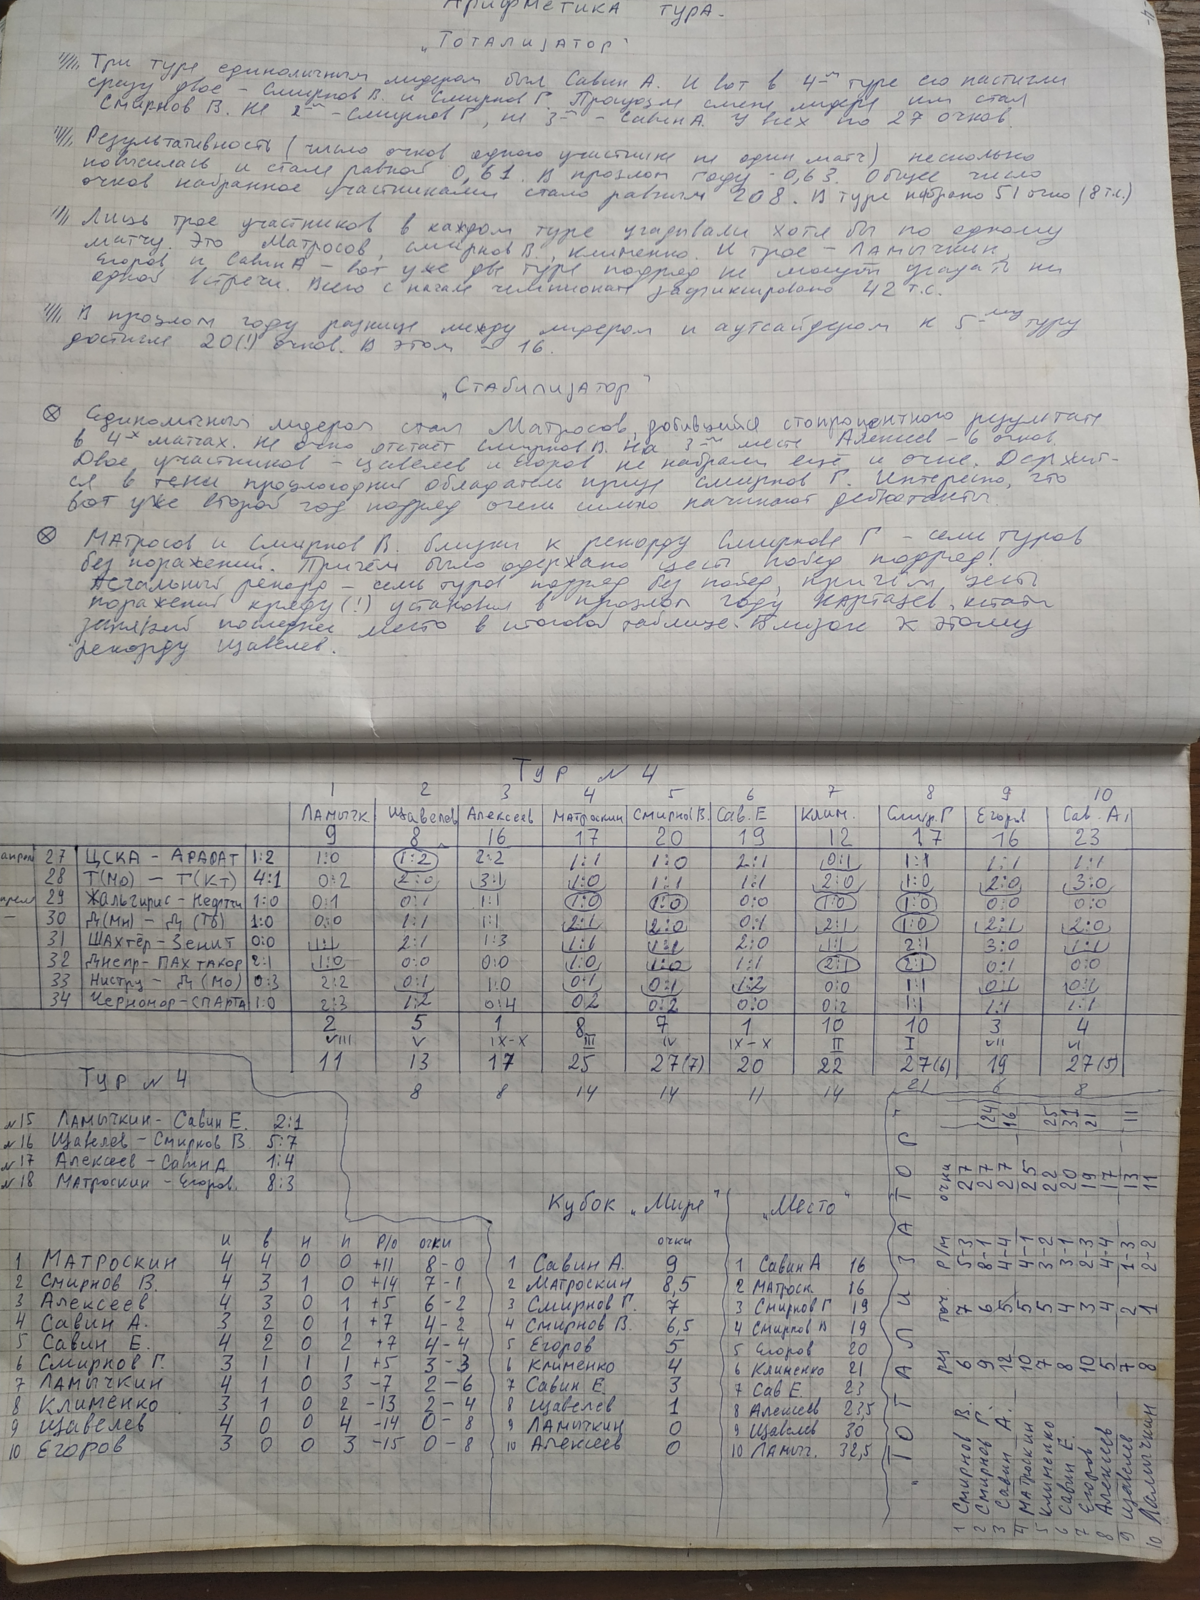 Арифметика тура.
"Тотализатор"
Три тура единоличным лидером был Савин А. И вот в 4-м туре его настигли
сразу двое - Смирнов В. и Смирнов Г. Произошла смена лидера им стал
Смирнов В. На 2-м - Смирнов Г, на 3-м - Савин А. У всех по 27 очков.
Результативность (число очков одного участника на один матч) несколько
повысилась и стала равной 0,61. В прошлом году - 0,63. Общее число
очков набранное участниками стало равным 208. В туре набрано 51 очко (8 т.с.)
Лишь трое участников в каждом туре угадывали хотя бы по одному
матчу. Это Матросов, Смирнов В., Клименко. И трое - Ламычкин,
Егоров и Савин А - вот уже два тура подряд не могут угадать ни
одной встречи. Всего с начала чемпионата зафиксировано 42 т.с.
В прошлом году разница между лидером и аутсайдером к 5-му туру
достигла 20(!) очков. В этом - 16.
"Стабилизатор"
Единоличным лидером стал Матросов, добившийся стопроцентного результата
в 4-х матчах. На очко отстаёт Смирнов В. На 3-м месте Алексеев - 6 очков.
Двое участников - Щавелев и Егоров не набрали ещё и очка. Держит-
ся в тени прошлогодний обладатель приза Смирнов Г. Интересно, что
вот уже второй год подряд очень сильно начинают дебютанты.
Матросов и Смирнов В. близки к рекорду Смирнова Г - семь туров
без поражений. Причём было одержано шесть побед подряд!
Печальный рекорд - семь туров подряд без побед, причём, шесть
поражений кряду(!) установил в прошлом году Карташев, кстати
занявший последнее место в итоговой таблице. Близок к этому
рекорду Щавелев.
Тур № 4
1 2 3 4 5 6 7 8 9 10
Ламычк Щавелев Алексеев Матроскин Смирнов В. Сав. Е Клим. Смир. Г Егоров Сав. А.
9 8 16 17 20 19 12 17 16 23
27 ЦСКА - Арарат 1:2 1:0 1:2 2:2 1:1 1:0 2:1 0:1 1:1 1:1 1:1
28 Т(Мо) - Т(Кт) 4:1 0:2 2:0 3:1 1:0 1:1 1:1 2:0 1:0 2:0 3:0
29 Жальгирис - Нефтчи 1:0 0:1 0:1 1:1 1:0 1:0 0:0 1:0 1:0 0:0 0:0
30 Д(Мн) - Д(Тб) 1:0 0:0 1:1 1:1 2:1 2:0 0:1 2:1 1:0 2:1 2:0
31 Шахтёр - Зенит 0:0 1:1 2:1 1:3 1:1 1:1 2:0 1:1 2:1 3:0 1:1
32 Днепр - Пахтакор 2:1 1:0 0:0 0:0 1:0 1:0 1:1 2:1 2:1 0:1 0:0
33 Нистру - Д(Мо) 0:3 2:2 0:1 1:0 0:1 0:1 1:2 0:0 1:1 0:1 0:1
34 Черномор - Спарта 1:0 2:3 1:2 0:4 0:2 0:2 0:0 0:2 1:1 1:1 1:1
2 5 1 8 7 1 10 10 3 4
VIII V IX-X III IV IX-X II I VII VI
11 13 17 25 27(7) 20 22 27(6) 19 27(5)
8 8 14 14 11 14 21 6 8
Тур № 4
№15 Ламычкин - Савин Е. 2:1
№16 Щавелев - Смирнов В 5:7
№17 Алексеев - Савин А 1:4
№18 Матроскин - Егоров. 8:3
и в н п р/о очки
1 Матроскин 4 4 0 0 +11 8-0
2 Смирнов В. 4 3 1 0 +14 7-1
3 Алексеев 4 3 0 1 +5 6-2
4 Савин А. 3 2 0 1 +7 4-2
5 Савин Е. 4 2 0 2 +7 4-4
6 Смирнов Г. 3 1 1 1 +5 3-3
7 Ламычкин 4 1 0 3 -7 2-6
8 Клименко 3 1 0 2 -13 2-4
9 Щавелев 4 0 0 4 -14 0-8
10 Егоров 3 0 0 3 -15 0-8
Кубок "Мира"
очки
1 Савин А. 9
2 Матроскин 8,5
3 Смирнов Г. 7
4 Смирнов В. 6,5
5 Егоров 5
6 Клименко 4
7 Савин Е. 3
8 Щавелев 1
9 Ламычкин 0
10 Алексеев 0
"Место"
1 Савин А 16
2 Матроск. 16
3 Смирнов Г 19
4 Смирнов В 19
5 Егоров 20
6 Клименко 21
7 Сав Е. 23
8 Алексеев 23,5
9 Щавелев 30
10 Ламыч. 32,5
"Тотализатор"
рез точ р/м очки
1 Смирнов В. 6 7 5-3 27
2 Смирнов Г. 9 6 8-1 27 (24)
3 Савин А. 12 5 4-4 27 16
4 Матроскин 10 5 4-1 25
5 Клименко 7 5 3-2 22 25
6 Савин Е. 8 4 3-1 20 31
7 Егоров 10 3 2-3 19 21
8 Алексеев 5 4 4-4 17
9 Щавелев 7 2 1-3 13 11
10 Ламычкин 8 1 2-2 11